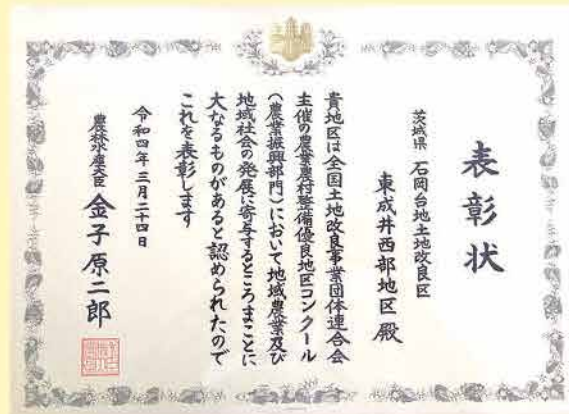 表彰状
茨城県 石岡台地土地改良区
東成井西部地区 殿
貴地区は全国土地改良事業団体連合会
主催の農業農村整備優良地区コンクール
(農業振興部門)において地域農業及び
地域社会の発展に寄与するところまことに
大なるものがあると認められたので
これを表彰します
令和四年三月二十四日
農林水産大臣 金子原二郎